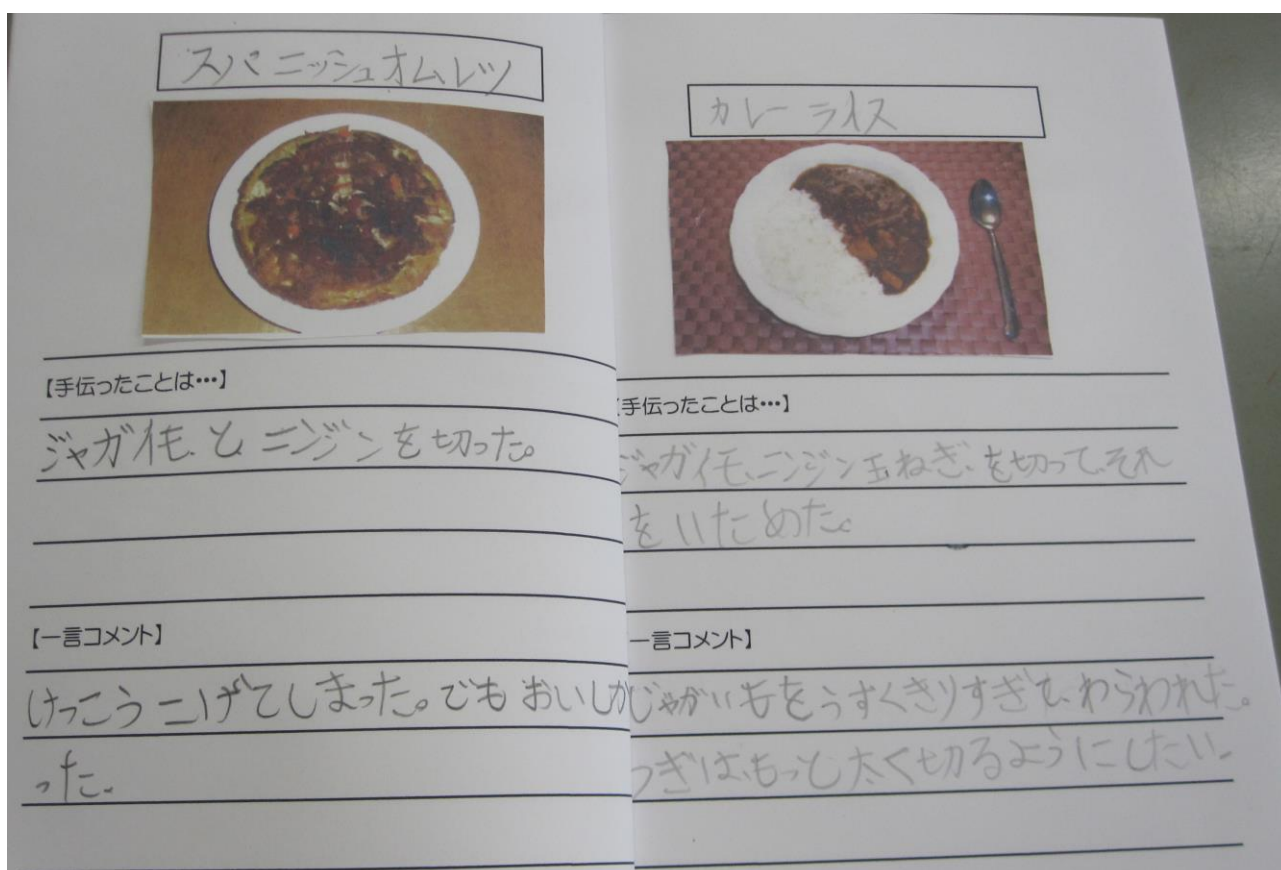 スパニッシュオムレツ
【手伝ったことは…】
ジャガイモ、とニンジンを切った。
【一言コメント】
けっこうこげてしまった。でもおいしか
った。
カレーライス
手伝ったことは…】
ジャガイモ、ニンジン玉ねぎ、を切って、それ
をいためた。
一言コメント】
じゃがいもをうすくきりすぎて、わらわれた。
つぎは、もっと太く切るようにしたい。